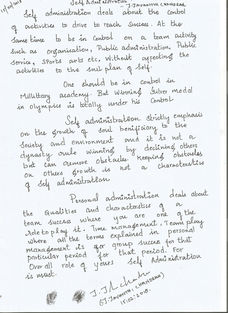 Self Administration
Self administration deals about the control
of activities to drive to reach success. At the
same time to be in control on a team activity
such as organisation, Public administration, Public
service, Sports arts etc, without affecting the
activities to the sub plan of Self.
One should be in control in
Millitary academy. But Winning Silver medal
in olympics is totally under his Control
Self administration strictly emphasis
on the growth of soul benificiary to the
Society and environment and it is not a
dynasty owule winning by declining others
but can remove obstacles. keeping obstacles
on others growth is not a characteristise
of Self administration.
Personal administration deals about
the Qualities and characterise of a
team success where you are one of the
role to play it. Time management, Team play
where all the terms explained in personal
management is for group success for that
particular period for that period. For
Overall role of yours Self Administration
is must.
15.02.2018.